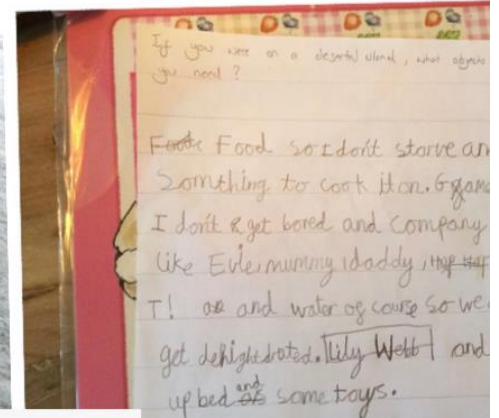 If you were on a deserted island, what objects
you need?
Food so I don't starve an
Somthing to cook it on. Game
I don't get bored and company
like Evie, mummy, daddy,
T! and water of course so we
get dehightdrated. Lily Webb and
up bed and some toys.